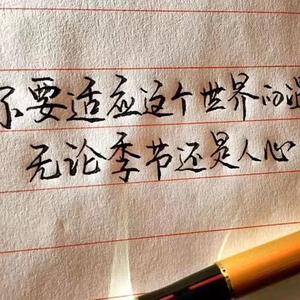 你要适应这个世界的
无论季节还是人心